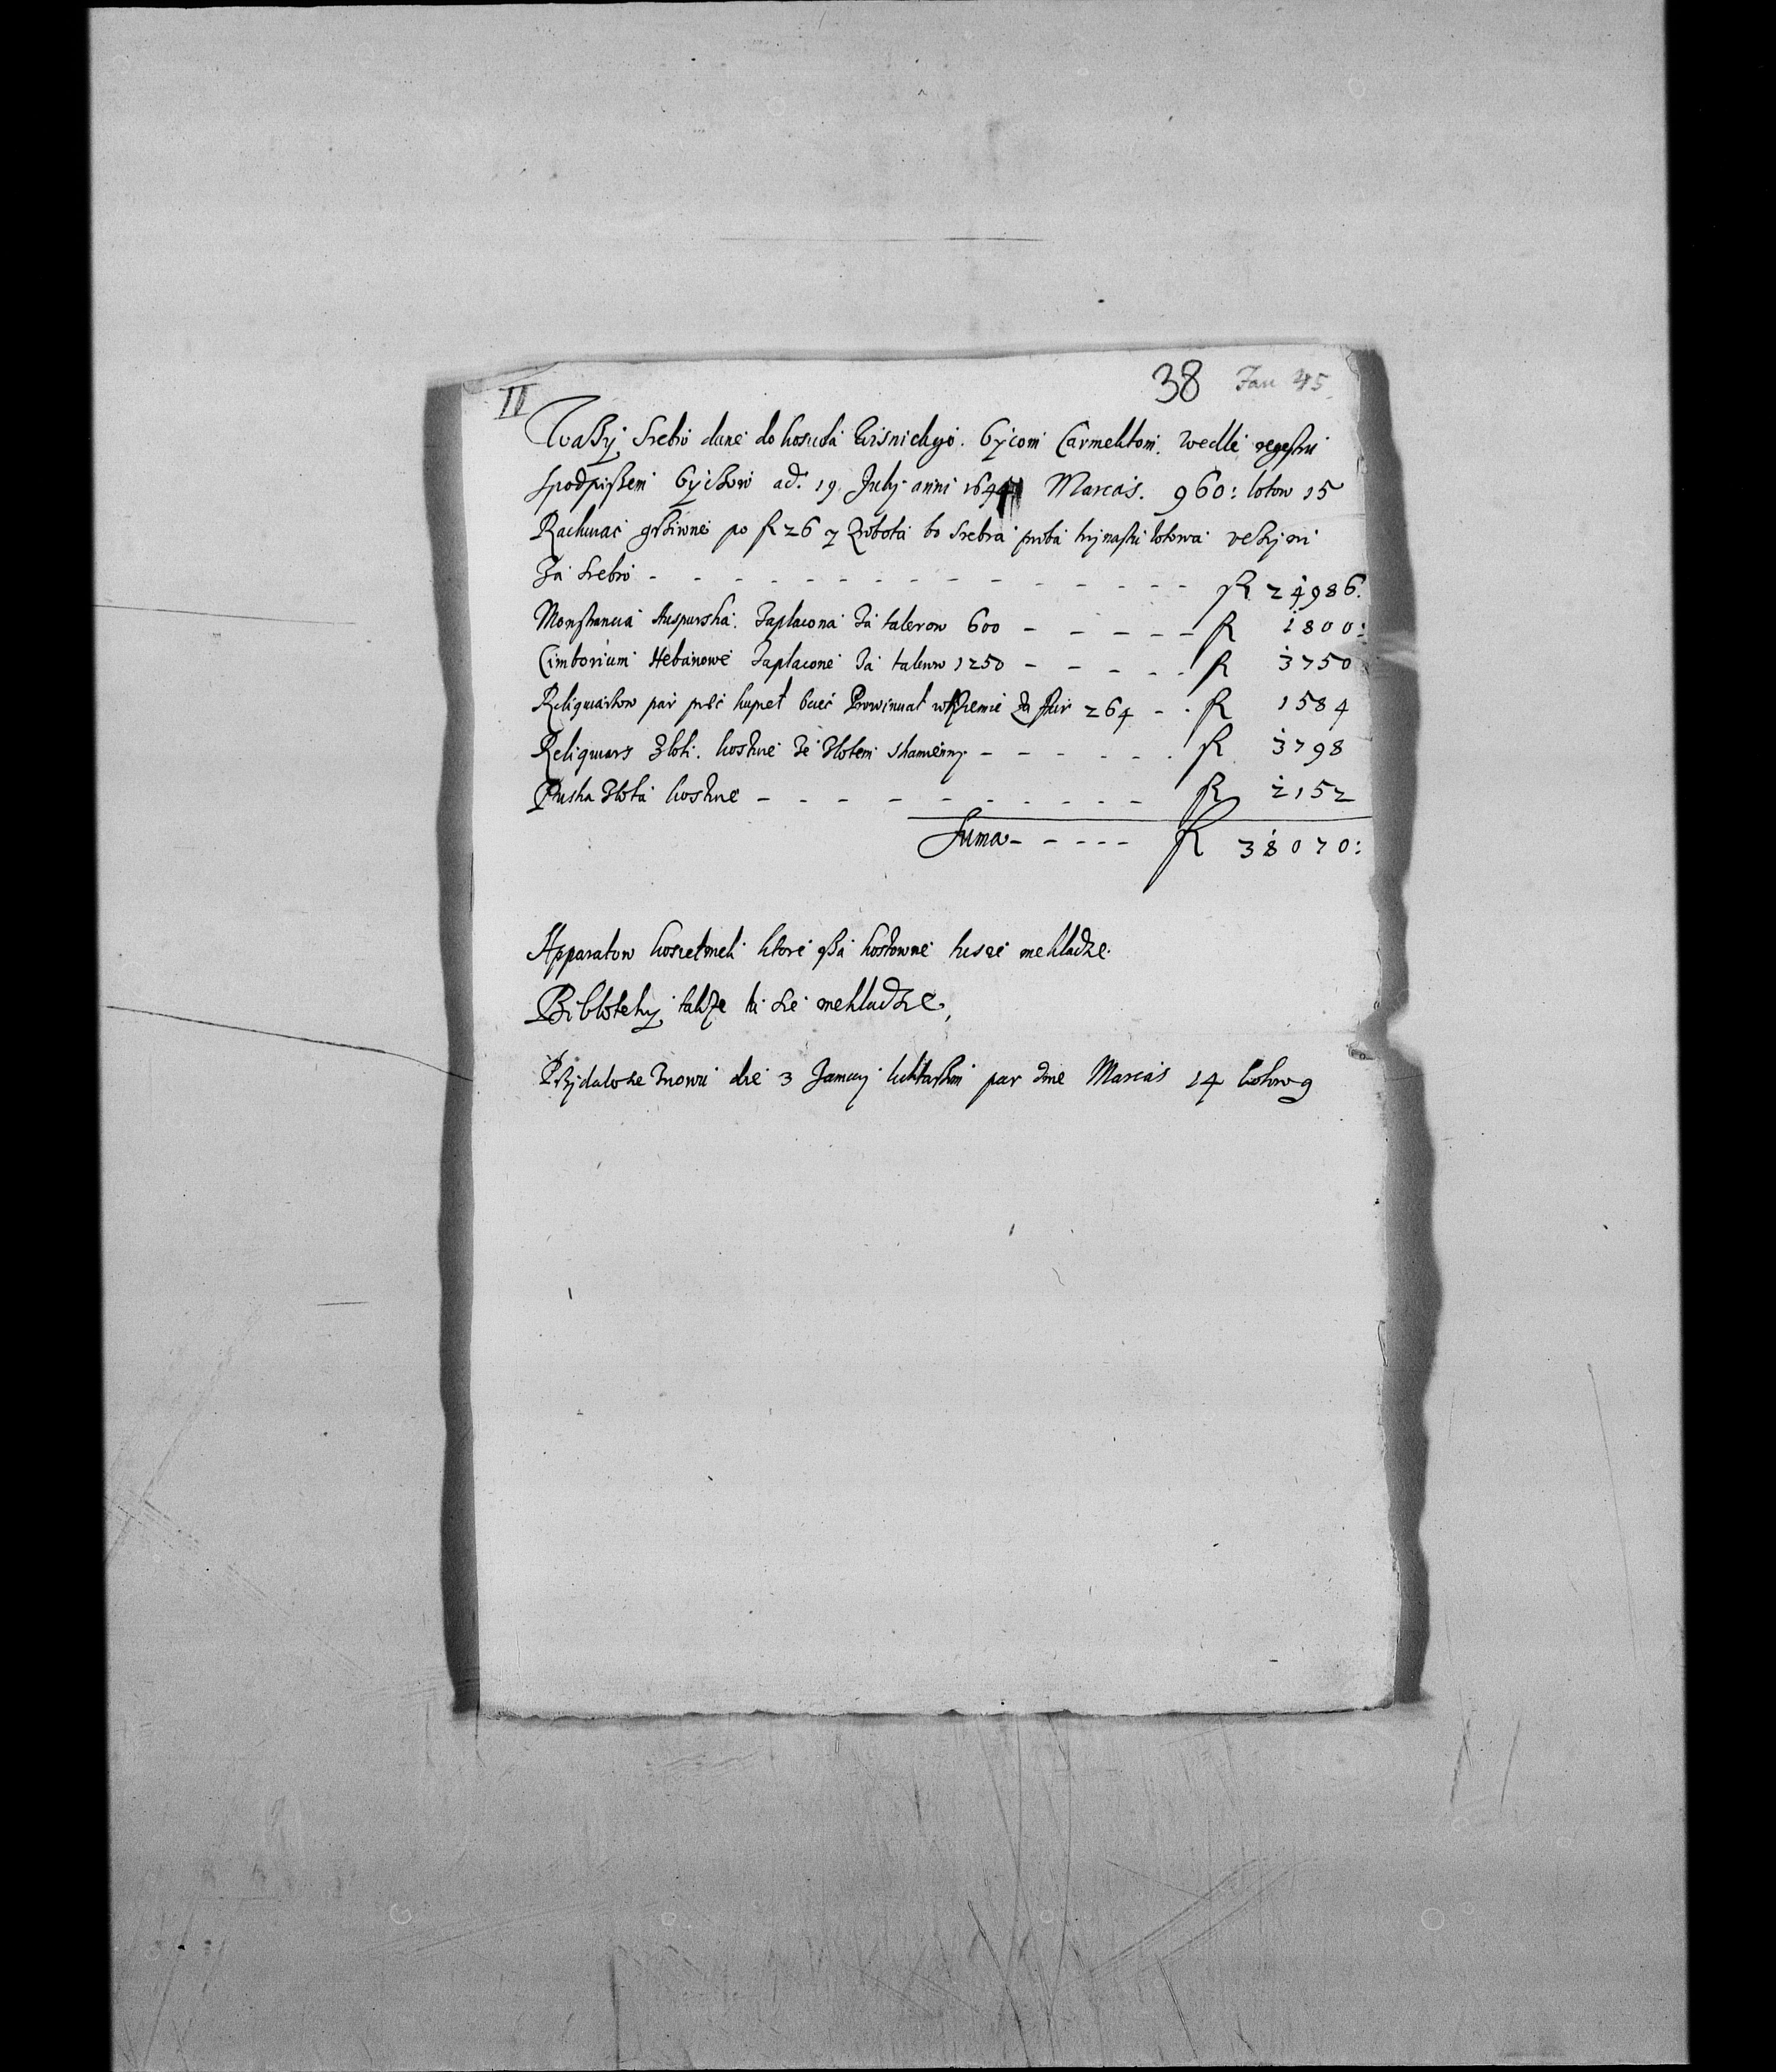 II 38 Jan 45
Waży Srebro dane do kosciola Wisnickyo. Oycom Carmelitom. wedle regestru
spodpisem Oyczow ad. 19 July anni 1644 Marcas. 960: lotow 15
Rachuiac grziwne po fl 26 z Robota bo srebra proba trzynasti lotowa
Za srebro - - - - - fl 24986.
Monstrancia Auspurska. Zaplacona Za talerow 600 - - - - - fl 1800:
Cimborium Hebanowe Zaplacone Za talerow 1250 - - - - - fl 3750
Reliquiarzow par pięc kupieł Prowincial w Rzemie Za 264 - - fl 1584
Reliquiars Zloti. kosztuie Ze Zlotem - - - - - - fl 3798
Puska Zlota kosztuie - - - - - - - - - - fl 2152
Suma - - - - - fl 38070:
Apparatow koscielnich ktore sza kostowne tu sie nie kladze.
Bibloteky takze tu sie nie kladze,
Przydalo sie znowu die 3 January par dwie Marcas 14 Lotow 9